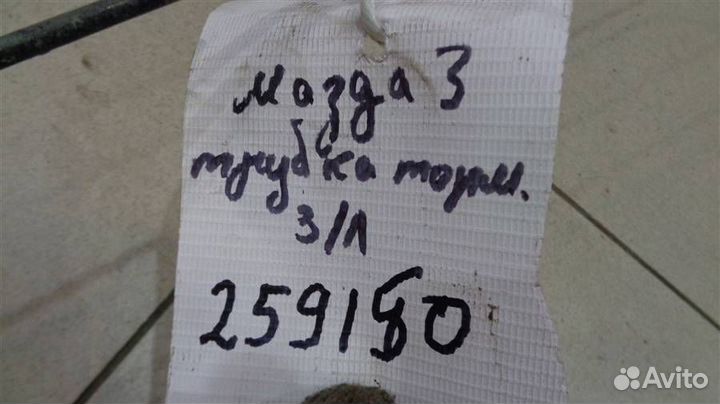 Мазда 3
трубка торм.
з/л
259180
Avito